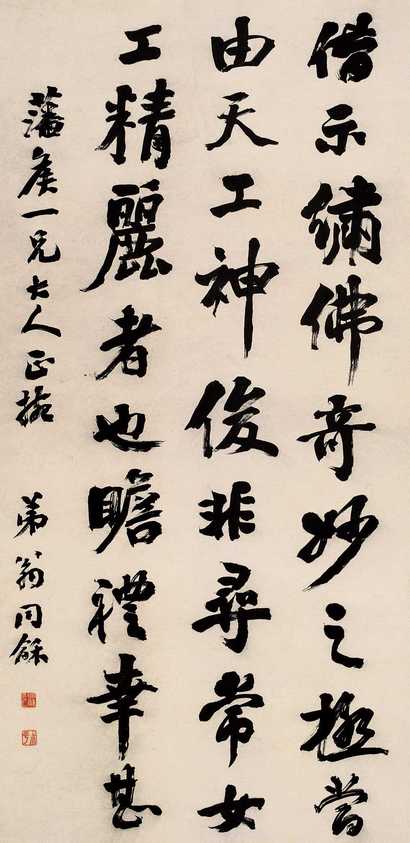 借示繡佛奇妙之極當
由天工神俊非尋常女
工精麗者也瞻禮幸甚
藩侯一兄大人正挽
弟翁同龢